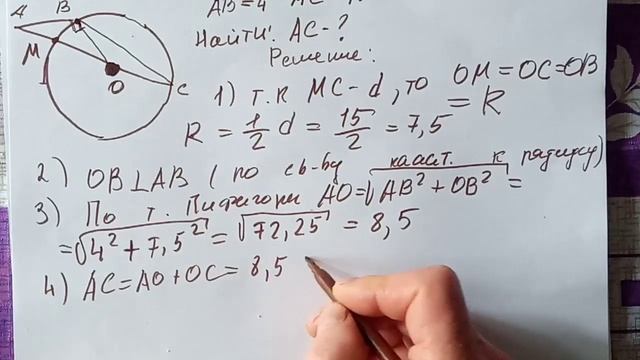 A B
AB=4
M
Найти: AC-?
Решение:
O
C
1) т.к MC-d, то OM=OC=OB
= R
R = 1/2 d = 15/2 = 7,5
2) OB⊥AB (по св-ву касат. к радиусу)
3) По т. Пифагора AO=√AB²+OB² =
=√4²+7,5² = √72,25 = 8,5
4) AC=AO+OC= 8,5